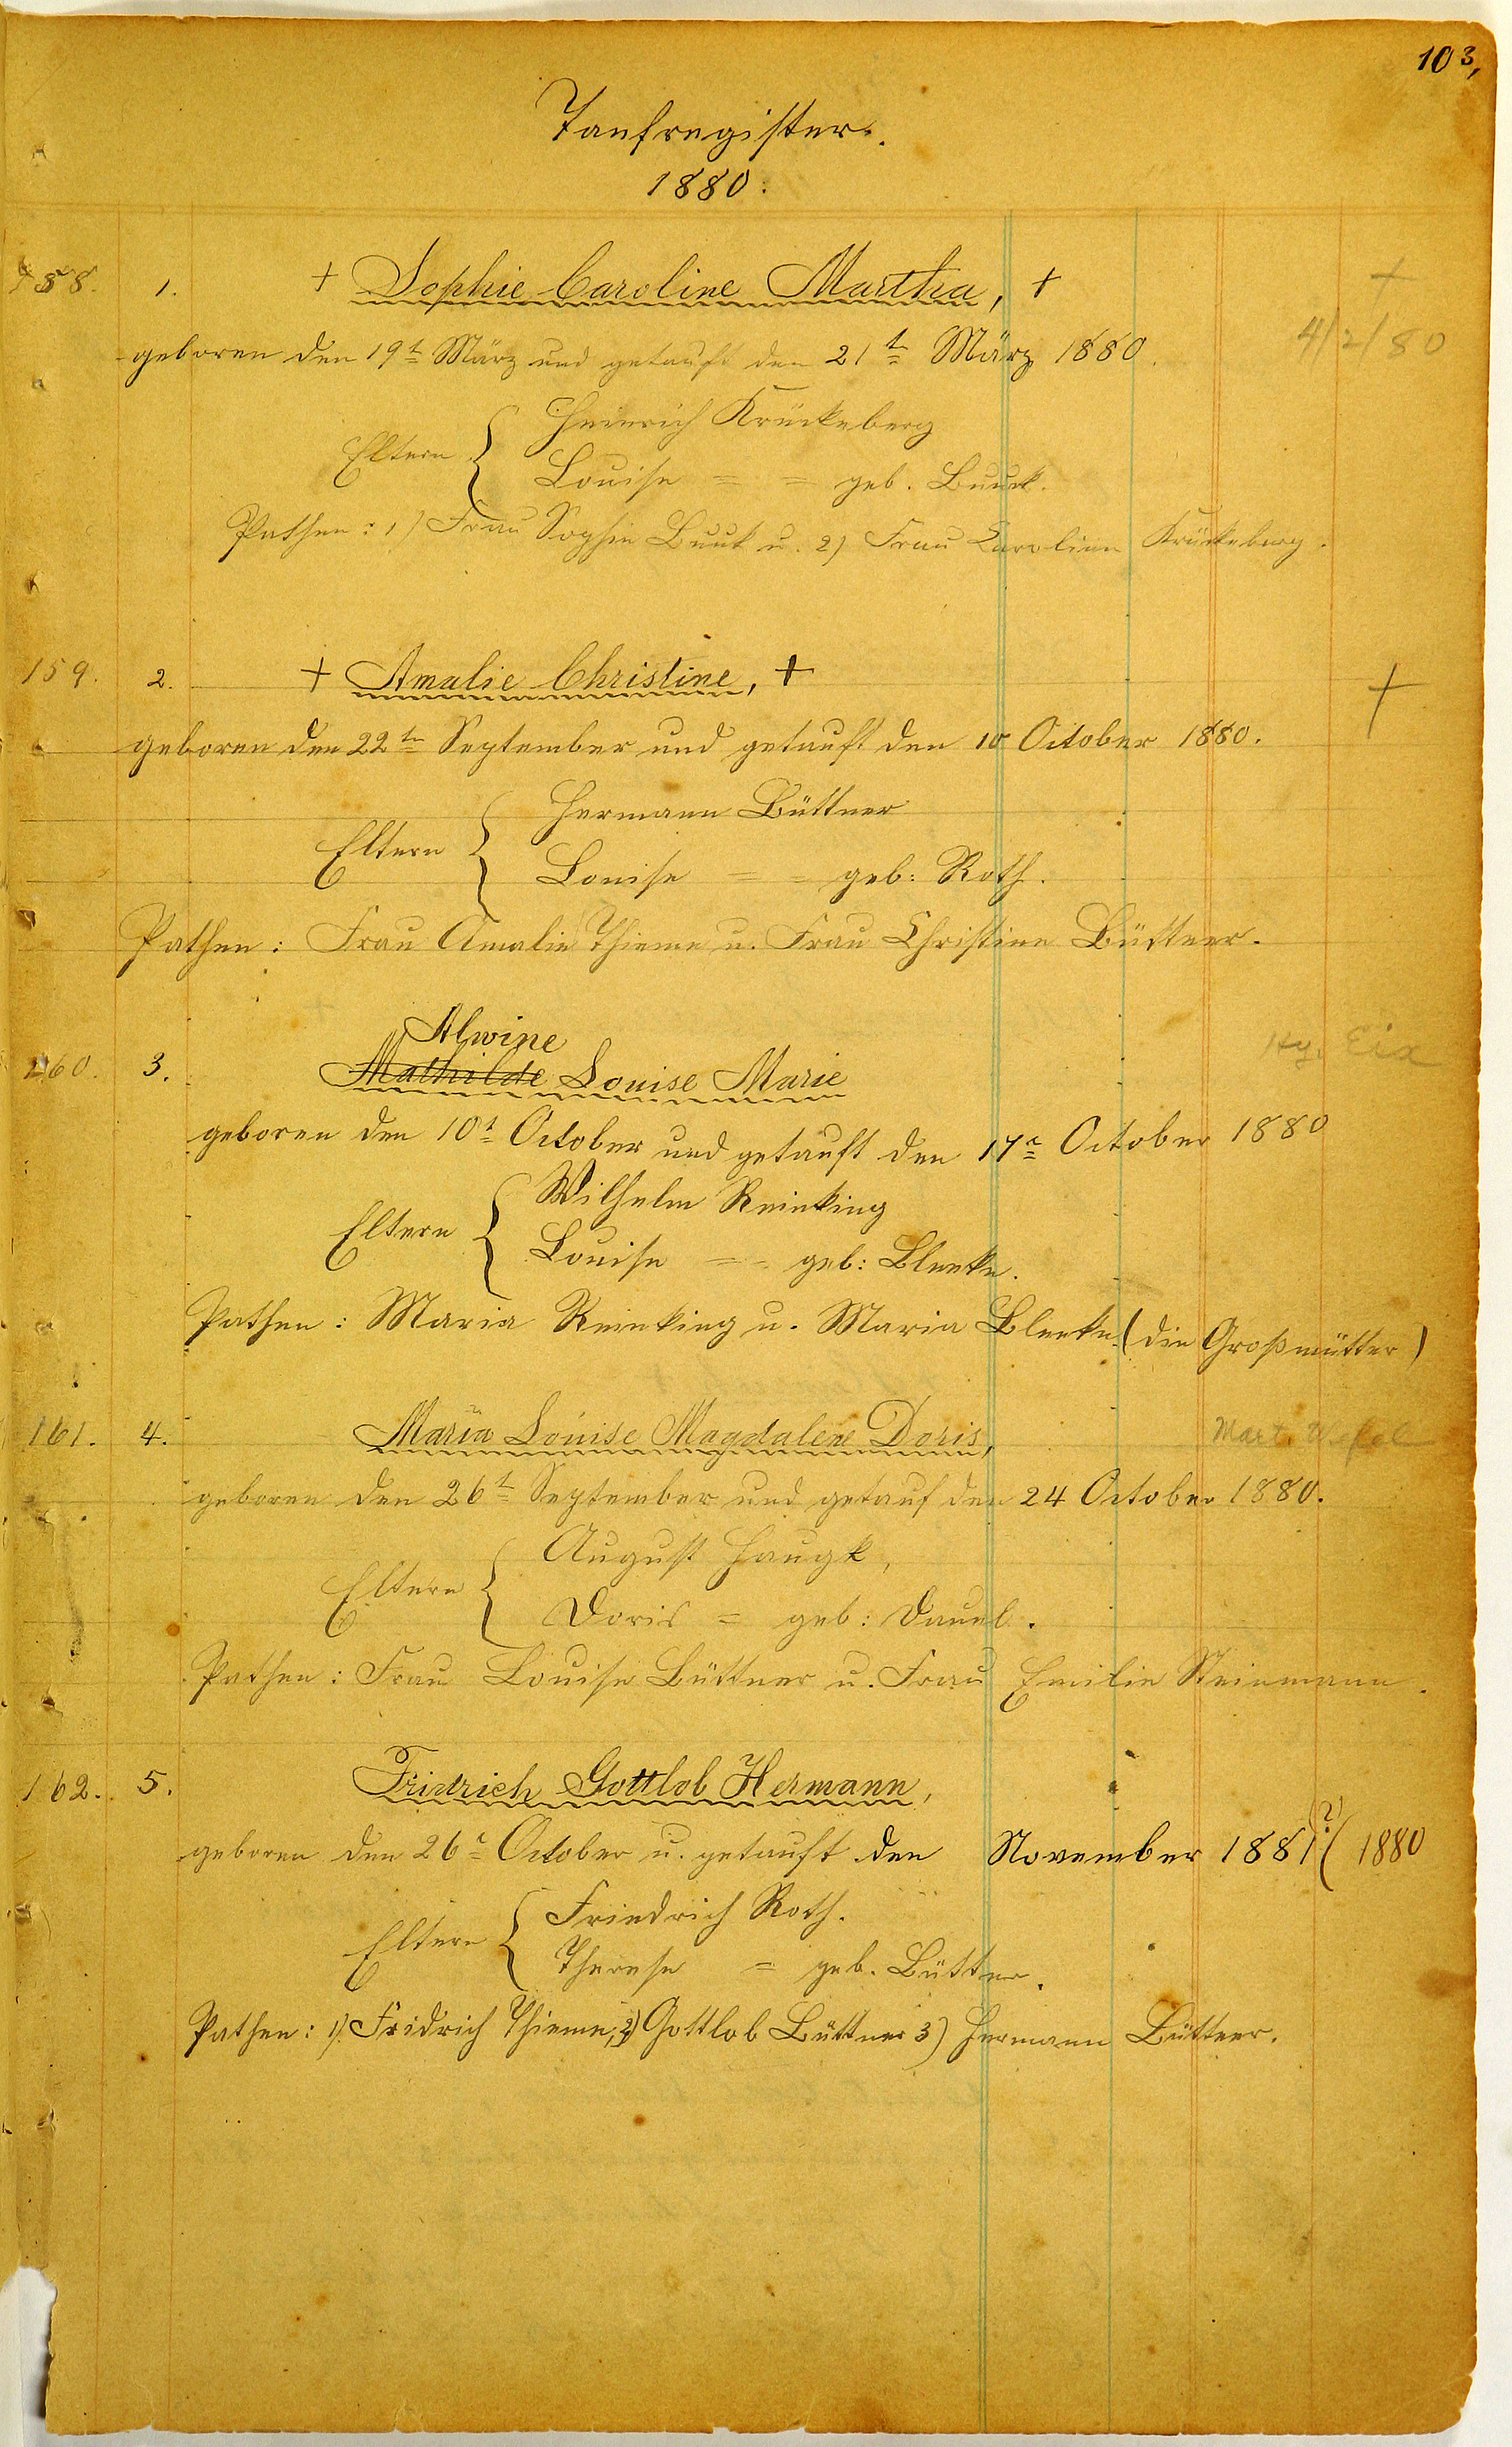 103,
Taufregister.
1880.
158. 1. + Sophie Caroline Martha, + +
geboren den 19t März und getauft den 21t März 1880. 4/2/80
Eltern { Heinrich Krückeberg
Louise = = geb. Buuck.
Pathen: 1) Frau Sophie Buuk u. 2) Frau Caroline Krückeberg.
159. 2. + Amalie Christine, + +
geboren den 22tn September und getauft den 10 October 1880.
Eltern { Hermann Büttner
Louise = = geb: Roth.
Pathen: Frau Amalie Thieme u. Frau Christine Büttner.
Alwine
160. 3. Mathilde Louise Marie Hy. Eix
geboren den 10t October und getauft den 17n October 1880
Eltern { Wilhelm Reinking
Louise = = geb: Bleeke.
Pathen: Maria Reinking u. Maria Bleeke (die Großmütter)
161. 4. Maria Louise Magdalene Doris, Mart.
geboren den 26t September und getauf den 24 October 1880.
Eltern { August Haugk,
Doris = geb: Dauel.
Pathen: Frau Louise Büttner u. Frau Emilie Steinmann.
162. 5. Fridrich Gottlob Hermann,
geboren den 26t October u. getauft den November 1881(?) ( 1880
Eltern { Friedrich Roth.
Therese = geb. Büttner.
Pathen: 1) Fridrich Thieme, 2) Gottlob Büttner 3) Hermann Büttner.